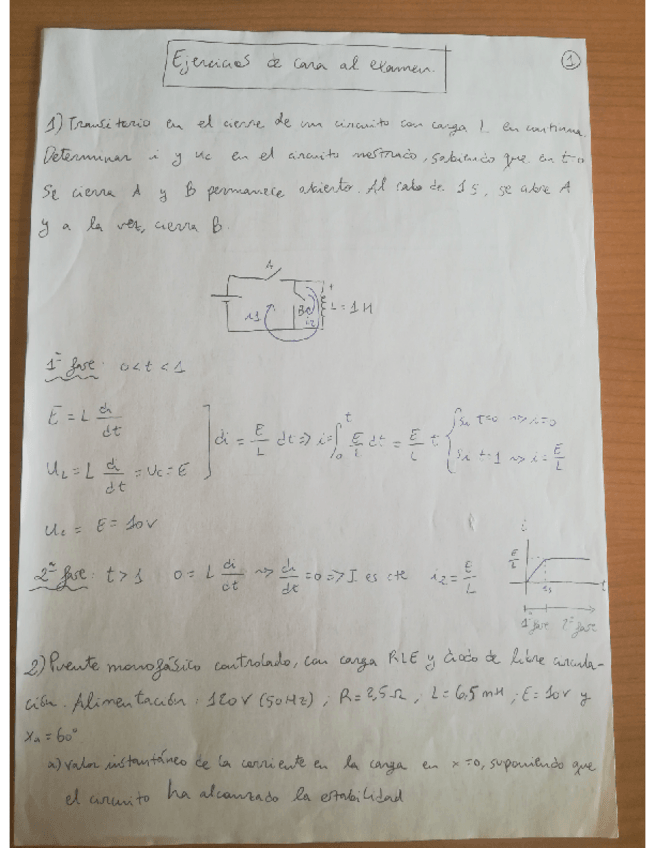 Ejercicios de cara al examen.
1
1) Transitorio en el cierre de un circuito con carga L en continua.
Determinar i y uc en el circuito mostrado, sabiendo que en t=0
se cierra A y B permanece abierto. Al cabo de 1s, se abre A
y a la vez, cierra B.
A
i1 B i2 + L = 1H
1ª fase: 0<t<1
E = L di/dt
di = E/L dt => i = ∫₀ᵗ E/L dt = E/L t { Si t=0 ⇝ i=0
Si t=1 ⇝ i = E/L
UL = L di/dt = Uc = E
Uc = E = 10V
2ª fase: t > 1 0 = L di/dt ⇝ di/dt = 0 => I es cte i2 = E/L
i
E/L
1s t
1ª fase 2ª fase
2) Puente monofásico controlado, con carga RLE y diodo de libre circula-
ción. Alimentación: 120V (50Hz); R = 2,5Ω; L = 6,5mH; E = 10V y
xa = 60°
a) Valor instantáneo de la corriente en la carga en x=0, suponiendo que
el circuito ha alcanzado la estabilidad